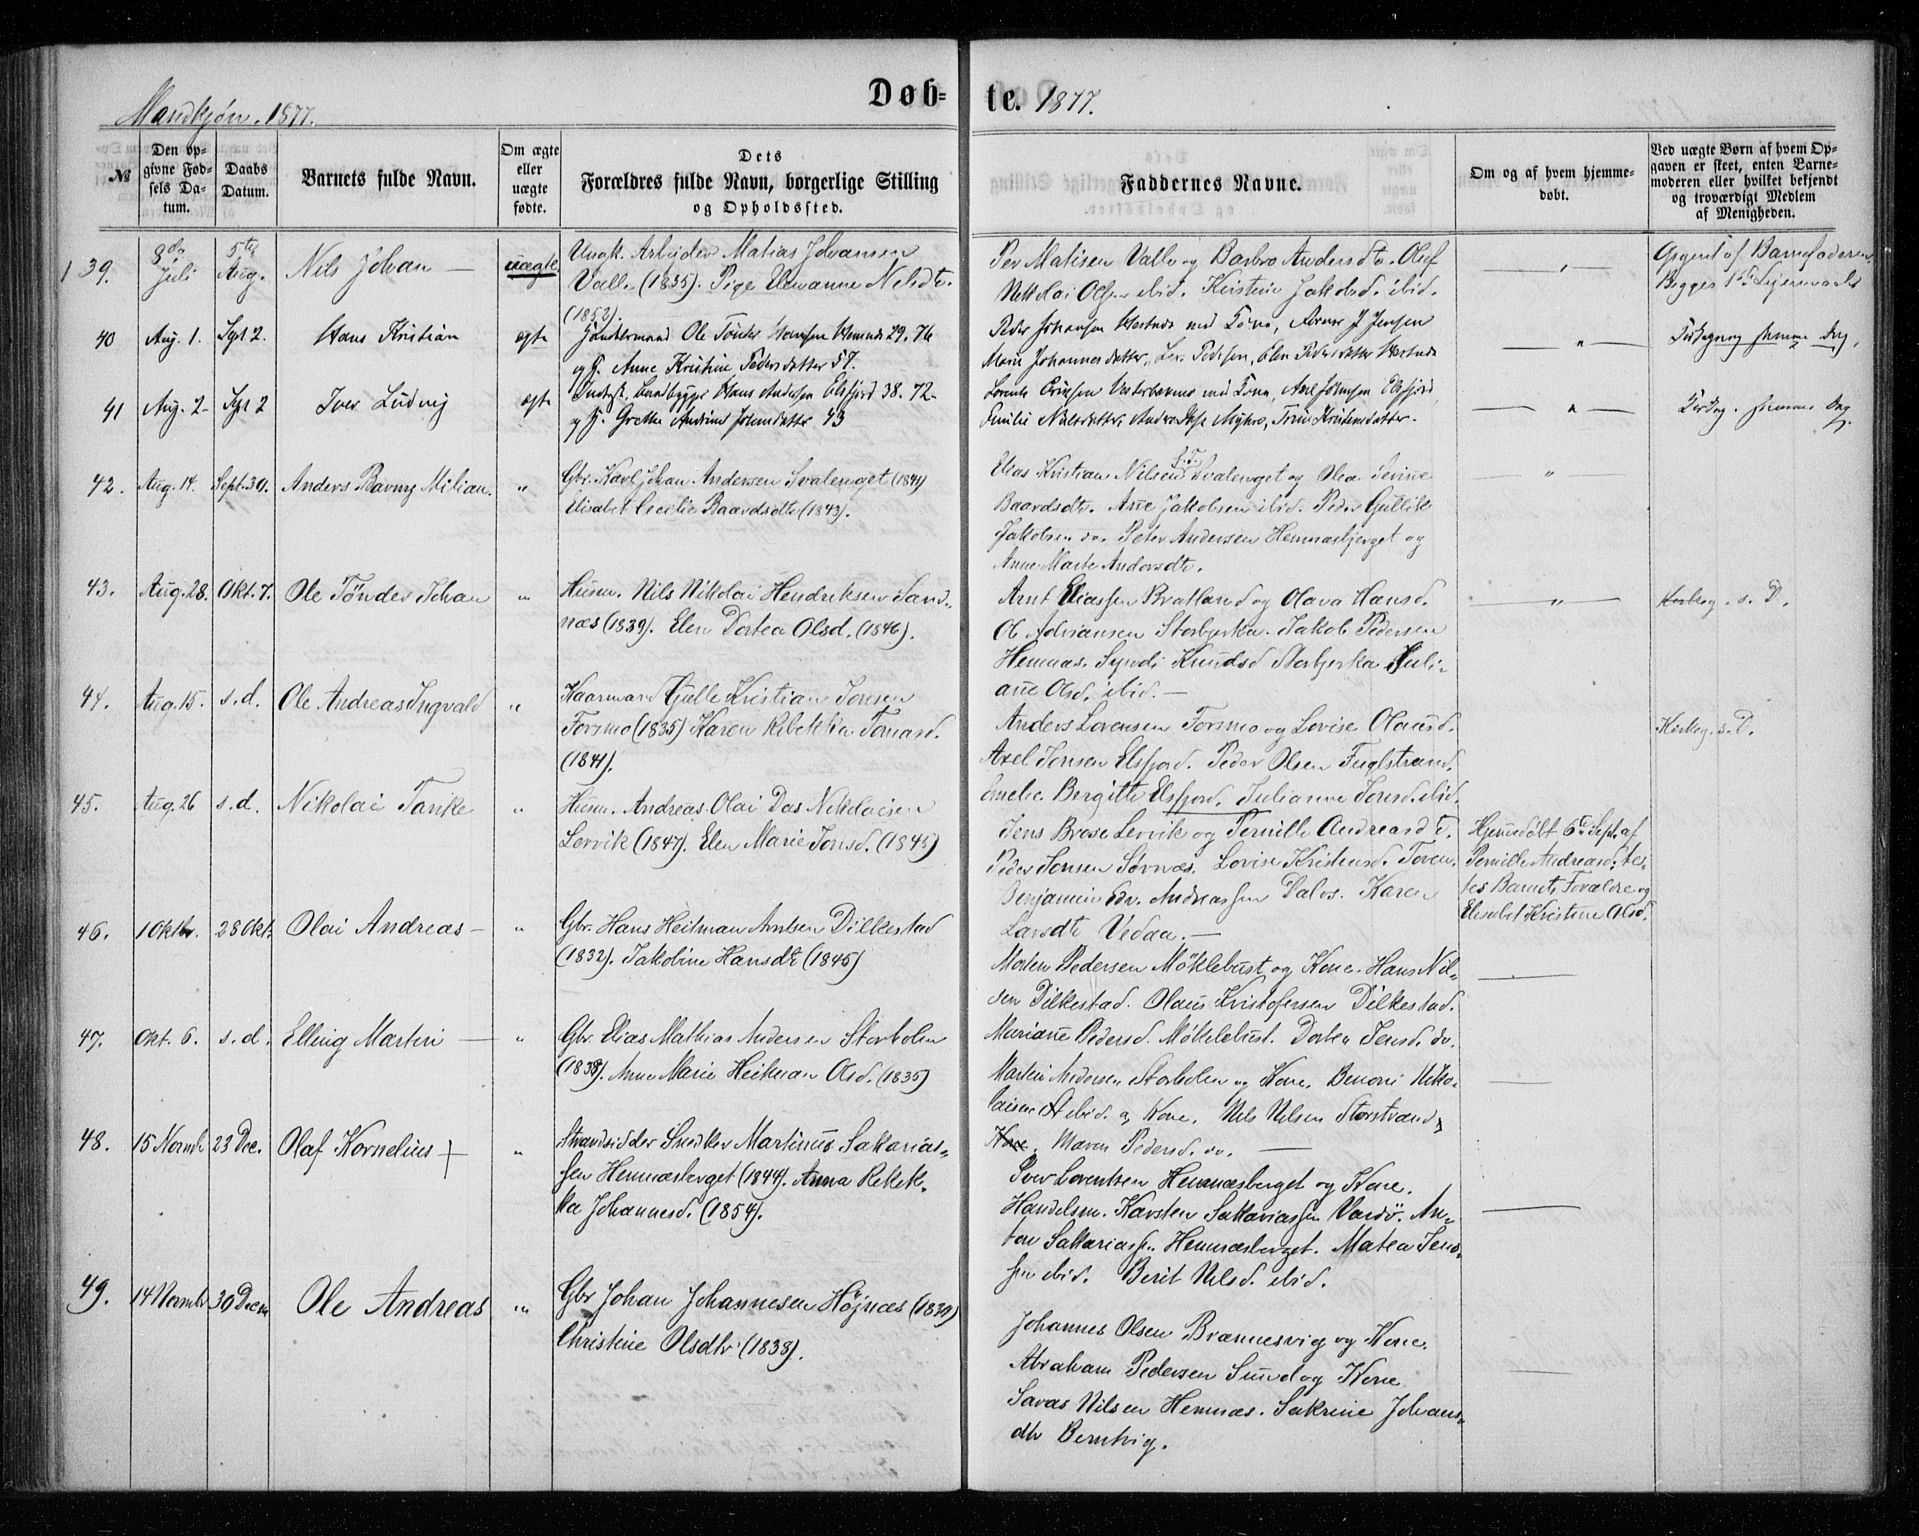 Mandkjøn. 1877.
Døb-
te. 1877.
№
Den op-
givne Fød-
sels Da-
tum.
Daabs
Datum.
Barnets fulde Navn.
Om ægte
eller
uægte
fødte.
Dets
Forældres fulde Navn, borgerlige Stilling
og Opholdssted.
Faddernes Navne.
Om og af hvem hjemme-
døbt.
Ved uægte Børn af hvem Op-
gaven er skeet, enten Barne-
moderen eller hvilket bekjendt
og troværdigt Medlem
af Menigheden.
39.
8de
Juli
5te
Aug.
Nils Johan
uægte
Ungk. Arbeider Matias Johansen
Valle (1835). Pige Nilsdt.
(1852).
Per Matisen Valle og Barbro Andersdt. Oluf
Nikolai Olsen ibid. Kristine Jakobsd. ibid.
Opgivet af Barnefaderen
Begges 1ste Leiermaal
40
Aug. 1.
Sept 2.
Hans Kristian
egte
Ole Tönder Hansen Hemnes 29. 76
og H. Anne Kristine Pedersdatter 57.
Peder Johansen med Kona, J. Jensen
Marie Johannesdatter, Pedersen, Elen Pedersdatter
samme Dag.
41
Aug. 2
Sept 2
Iver Ludvig
egte
Hans Andersen Elsfjord 38. 72
og H. Grethe Andrine Johnsdatter 43
med Kona, Axel Johnsen Elsfjord,
Emilie Nilsdatter, Trine Kristensdatter.
samme Dag.
42.
Aug. 14.
Sept. 30.
Anders Barny Milian.
"
Gbr. Karl Johan Andersen Svalenget (1841)
Elisabet Cecilie Baardsdt. (1843).
Elias Kristian Nilsen Svalenget og Olea Sevine
Baardsdt. Ane Jakobsen ibid. Peder Gullik
Jakobsen do. Peter Andersen Hemnæsbjerget og
Anne Marte Andersdt.
"
43.
Aug. 28.
Okt. 7.
Ole Tönder Johan
"
Husm. Nils Nikolai Hendriksen Sand-
næs (1839). Elen Dortea Olsd. (1846).
Arnt Eliassen Bratland og Olava Hansd.
Ol. Adriansen Storbjerka. Jakob Pedersen
Hemnæs. Synvi Knudsd. Storbjerka. Juli-
ane Olsd. ibid.
"
s. D.
44.
Aug. 15.
s. d.
Ole Andreas Ingvald
"
Kaarmand Gulle Kristian Jonsen
Forsmo (1835) Karen Rebekka Tomasd.
(1841).
Anders Lorensen Forsmo og Lovise Olausd.
Axel Jonsen Elsfjord. Peder Olsen Fuglstrand.
Emelie Bergitte Elsfjord. Julianne Jonsd. ibid.
Kirkeg. s. D.
45.
Aug. 26
s. d.
Nikolai Tanke
"
Husm. Andreas Olai Das Nikolaisen
Lervik (1847). Elen Marie Jonsd. (1845)
Jens Brose Lervik og Pernille Andreasdt.
Peder Jonsen Sörnæs. Lovise Kristensd. Toven.
Benjamin Edv. Andreassen Dalos. Karen
Larsdt. Vedaa.
Hjemmedöbt 6te Sept. af
Pernille Andreasd.
Barnets Forældre og
Elisabet Kristine Olsd.
46.
1 Oktbr.
28 Okt.
Olai Andreas
"
Gbr. Hans Heitman Arntsen Dilkestad
(1832). Jakobine Hansdt. (1845)
Morten Pedersen Möklebust og Kone. Hans Nil-
sen Dilkestad. Olaus Kristofersen Dilkestad.
Mariane Pedersd. Möklebust. Dortea Jensd. do.
47.
Okt. 6.
s. d.
Elling Martin
"
Gbr. Elias Mathias Andersen Storholm
(1838). Anne Marie Heitman Olsd. (1835)
Martin Andersen Storholm og Kone. Benoni Niko-
laisen ibid. og Kone. Nils Nilsen Storstrand
Kone. Maren Pedersd. do.
48.
15 Novmb.
23 Dec.
Olaf Kornelius
"
Strandsidder Snedker Martinus Sakarias-
sen Hemnæsberget (1844). Anna Rebek-
ka Johannesd. (1854).
Iver Lorentsen Hemnæsberget og Kone.
Handelsm. Karsten Sakariassen Vardö. An-
ton Sakariassen Hemnæsberget. Matea Jens-
sen ibid. Berit Nilsd. ibid.
49.
14 Novmb.
30 Decm
Ole Andreas
"
Gbr Johan Johannesen Højnæs (1839)
Christine Olsdtr (1838).
Johannes Olsen Brænnesvig og Kone.
Abraham Pedersen Sund og Kone
Savas Nilsen Hemnæs. Sakrine Johans-
dtr Bernvig.